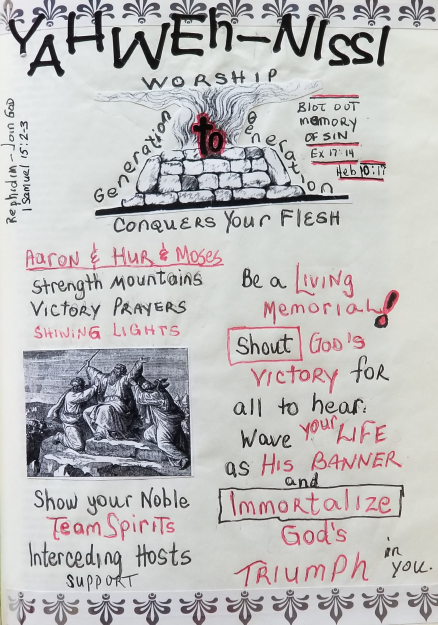 YAHWEh-NISSI
WORSHIP
Rephidim - Join GOD
1 Samuel 15:2-3
Generation
to
Generation
BlOT OUT
memory
OF SIN
Ex 17:14
Heb 10:17
CONQUERS YOUR FLESH
Aaron & HUR & Moses
Strength Mountains
VICTORY PRAYERS
SHINING LIGHTS
Show your Noble
TeamSpirits
Interceding Hosts
SUPPORT
Be a LIVING
Memorial!
Shout GOD'S
VICTORY for
all to hear.
Wave your LIFE
as HIS BANNER
and
Immortalize
God's
TRIUMPH in
you.